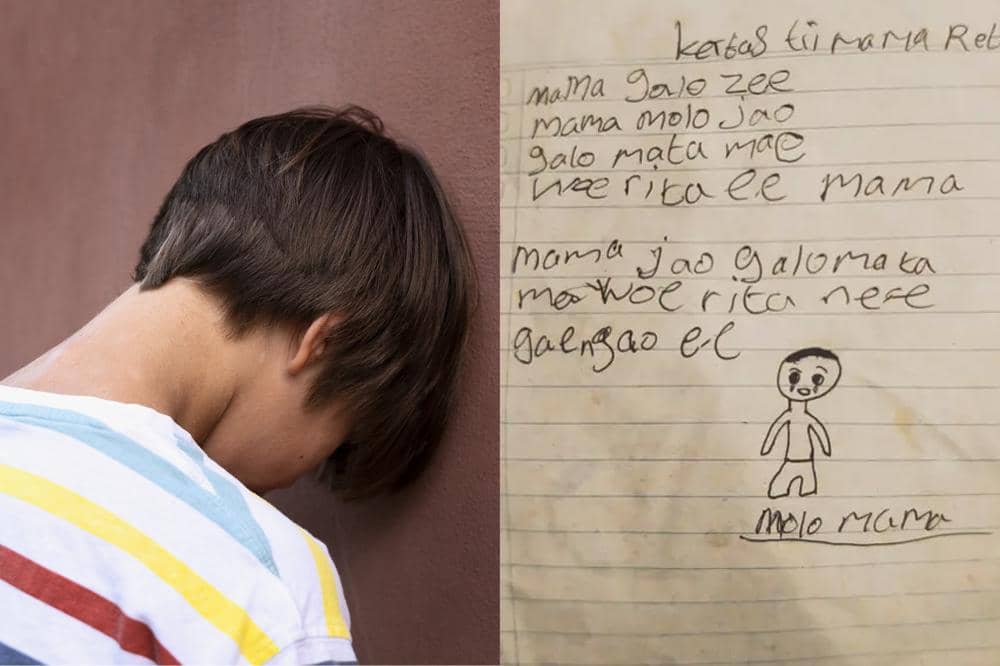 kertas tii mama Ret
mama galo zee
mama molo jao
galo mata mae
woe rita ee mama
mama jao galo mata
mae woe rita ne'e
gae ngao ee
molo mama